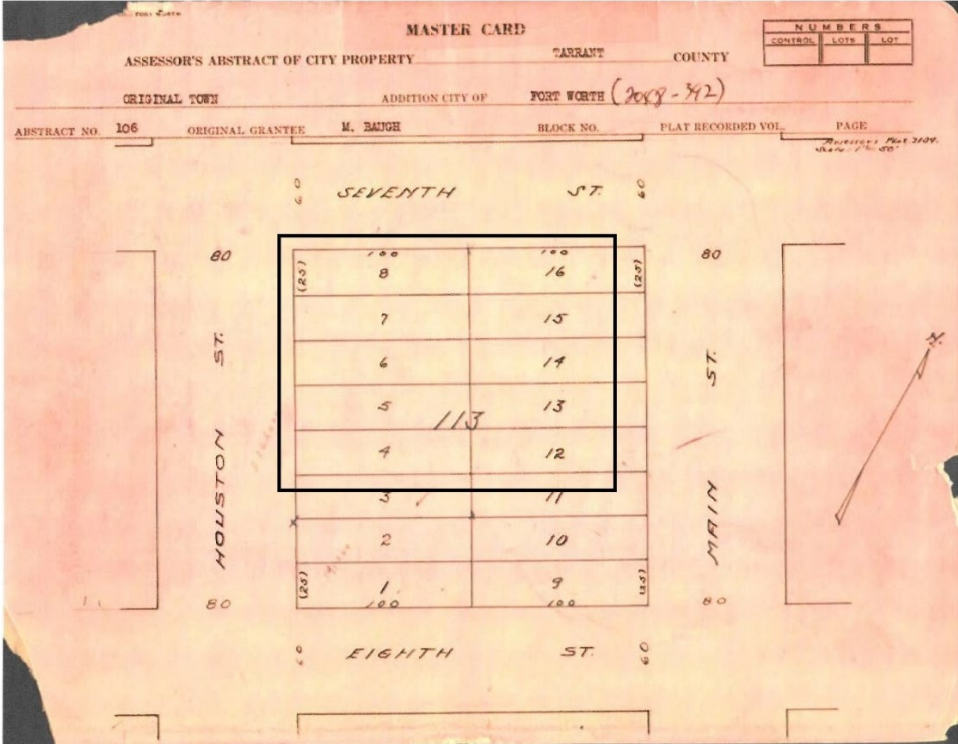 FORT WORTH
MASTER CARD
NUMBERS
CONTROL LOTS LOT
ASSESSOR'S ABSTRACT OF CITY PROPERTY TARRANT COUNTY
ORIGINAL TOWN ADDITION CITY OF FORT WORTH (2088-392)
ABSTRACT NO. 106 ORIGINAL GRANTEE M. BAUGH BLOCK NO. PLAT RECORDED VOL. PAGE
Assessors Plat 3104.
Scale: 1"= 50'
60 SEVENTH ST. 60
80 100 100 80
(25) 8 16 (25)
7 15
HOUSTON ST. MAIN ST.
6 14
N.
5 13
113
4 12
3 11
2 10
(25) 1 9 (25)
80 100 100 80
60 EIGHTH ST. 60